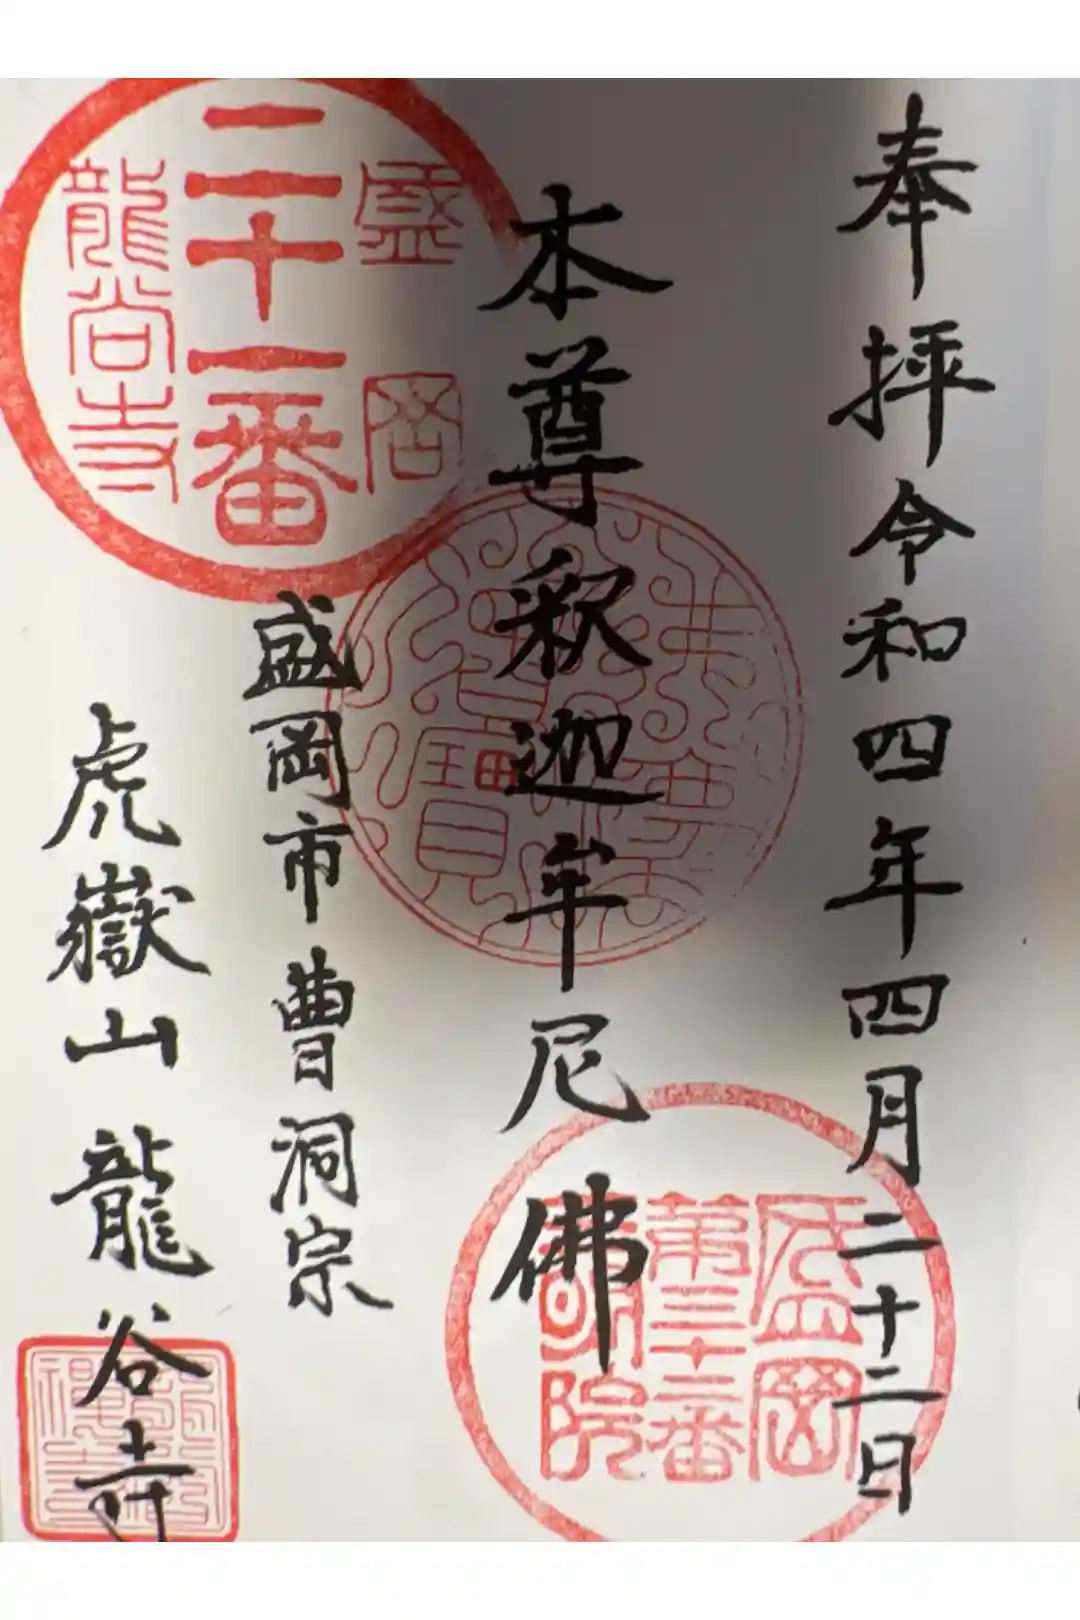 奉拝令和四年四月二十二日
本尊釈迦牟尼佛
盛岡市曹洞宗
虎嶽山龍谷寺
盛岡
二十一番
盛岡
第三十二番